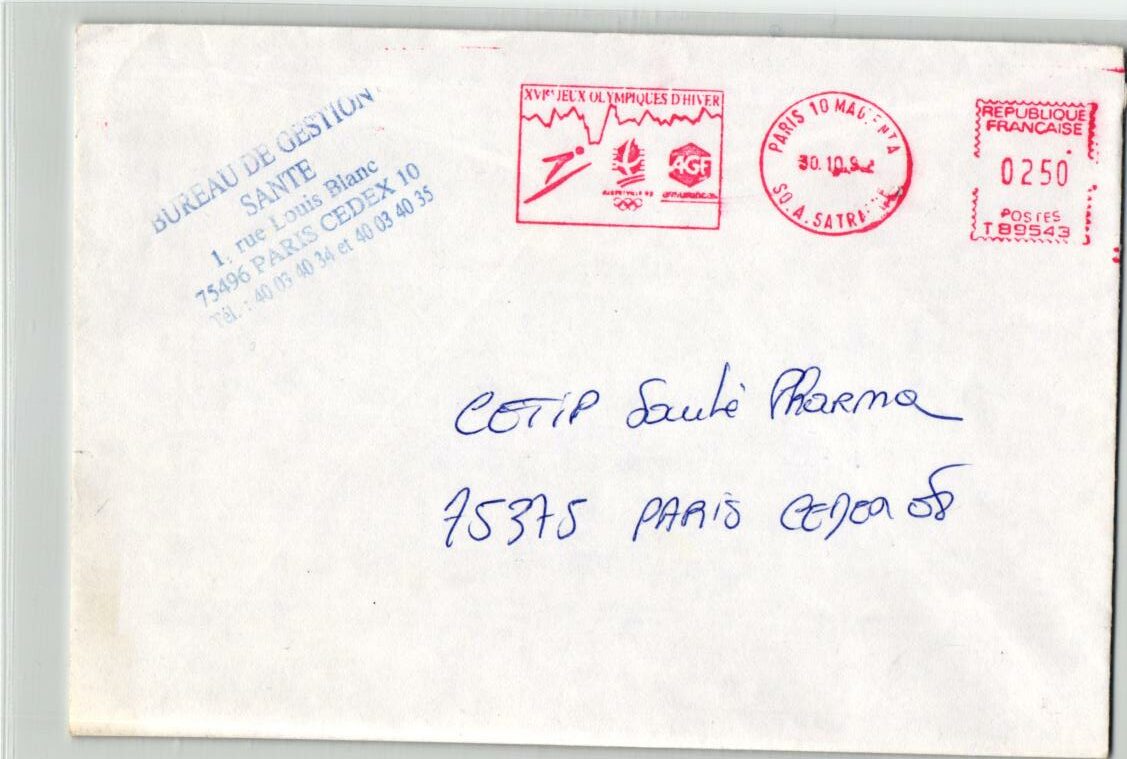 BUREAU DE GESTION
SANTE
1, rue Louis Blanc
75496 PARIS CEDEX 10
Tél. : 40 03 40 34 et 40 03 40 35
XVIes JEUX OLYMPIQUES D'HIVER
AGF
PARIS 10 MAGENTA
30.10.92
REPUBLIQUE
FRANCAISE
0250
POSTES
T 89543
CETIP Santé Pharma
75375 PARIS CEDEX 08